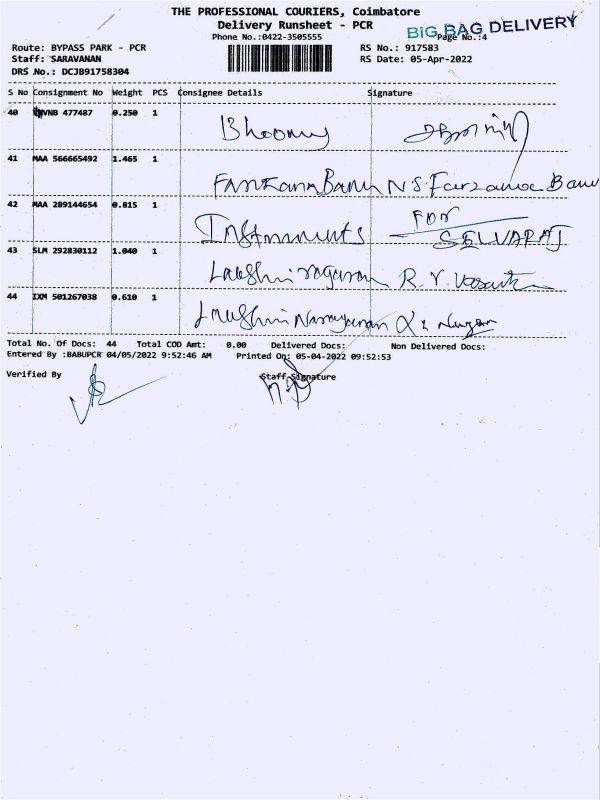 THE PROFESSIONAL COURIERS, Coimbatore
Delivery Runsheet - PCR
BIG BAG DELIVERY
Phone No.:0422-3505555
Page No.:4
Route: BYPASS PARK - PCR
RS No.: 917583
Staff: SARAVANAN
RS Date: 05-Apr-2022
DRS No.: DCJB91758304
S No Consignment No Weight PCS Consignee Details Signature
40 VNB 477487 0.250 1
41 MAA 566665492 1.465 1 N S. Farzana Banu
42 MAA 289144654 0.815 1 Instruments FOR SELVARAJ
43 SLM 292830112 1.040 1 R. Y.
44 IXM 501267038 0.610 1 Lakshmi Narayanan
Total No. Of Docs: 44 Total COD Amt: 0.00 Delivered Docs: Non Delivered Docs:
Entered By :BABUPCR 04/05/2022 9:52:46 AM Printed On: 05-04-2022 09:52:53
Verified By Staff Signature